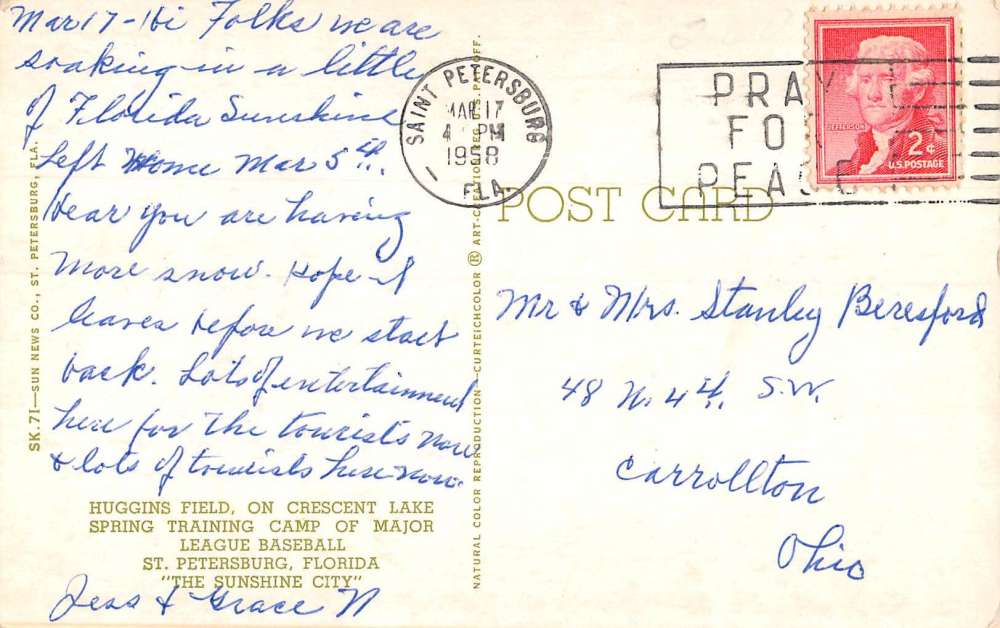 Mar 17 - Hi Folks we are
soaking in a little
of Florida Sunshine
Left Home Mar 5th.
hear you are having
more snow. Hope it
leaves before we start
back. Lots of entertainment
here for the tourists now
& lots of tourists here now.
HUGGINS FIELD, ON CRESCENT LAKE
SPRING TRAINING CAMP OF MAJOR
LEAGUE BASEBALL
ST. PETERSBURG, FLORIDA
"THE SUNSHINE CITY"
Jess & Grace N
SK.71—SUN NEWS CO., ST. PETERSBURG, FLA.
NATURAL COLOR REPRODUCTION—CURTEICHCOLOR ® ART-CREATION (REG. U.S. PAT. OFF.)
SAINT PETERSBURG
MAR 17
4 PM
1958
FLA.
PRAY
FOR
PEACE
JEFFERSON
2¢
U.S. POSTAGE
POST CARD
Mr & Mrs. Stanley Beresford
48 N. 4th. S.W.
Carrollton
Ohio